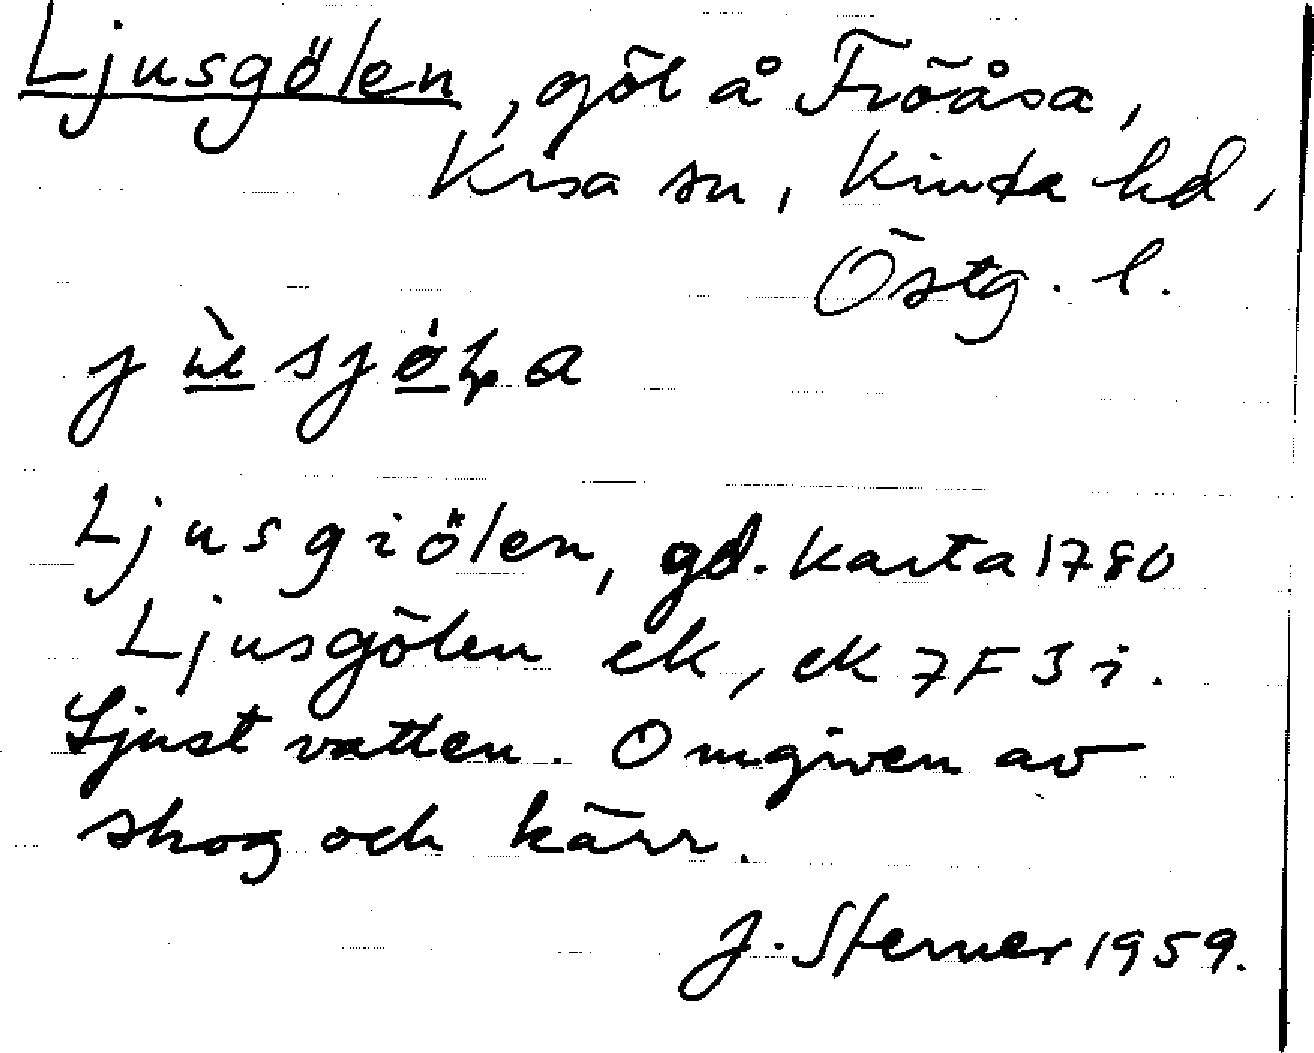 Ljusgölen, göl å Fröåsa,
Kisa sn, Kinda hd,
Östg. l.
Ljusgiölen, gd. karta 1780
Ljusgölen ek, ek 7F 3 i.
Ljust vatten. Omgiven av
skog och kärr.
J. Sterner 1959.